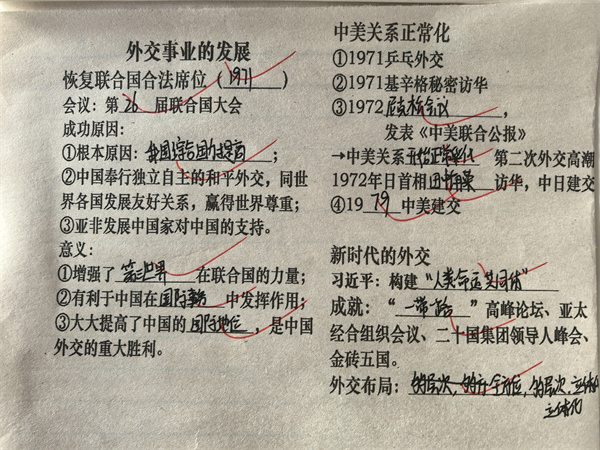 外交事业的发展
恢复联合国合法席位（1971）
会议：第26届联合国大会
成功原因：
①根本原因：我国综合国力提高；
②中国奉行独立自主的和平外交，同世
界各国发展友好关系，赢得世界尊重；
③亚非发展中国家对中国的支持。
意义：
①增强了第三世界在联合国的力量；
②有利于中国在国际舞台中发挥作用；
③大大提高了中国的国际地位，是中国
外交的重大胜利。
中美关系正常化
①1971乒乓外交
②1971基辛格秘密访华
③1972，
发表《中美联合公报》
→中美关系开始正常化 第二次外交高潮
1972年日首相田中角荣访华，中日建交
④1979中美建交
新时代的外交
习近平：构建“人类命运共同体”
成就：“一带一路”高峰论坛、亚太
经合组织会议、二十国集团领导人峰会、
金砖五国。
外交布局：全方位，多层次，立体化
立体化